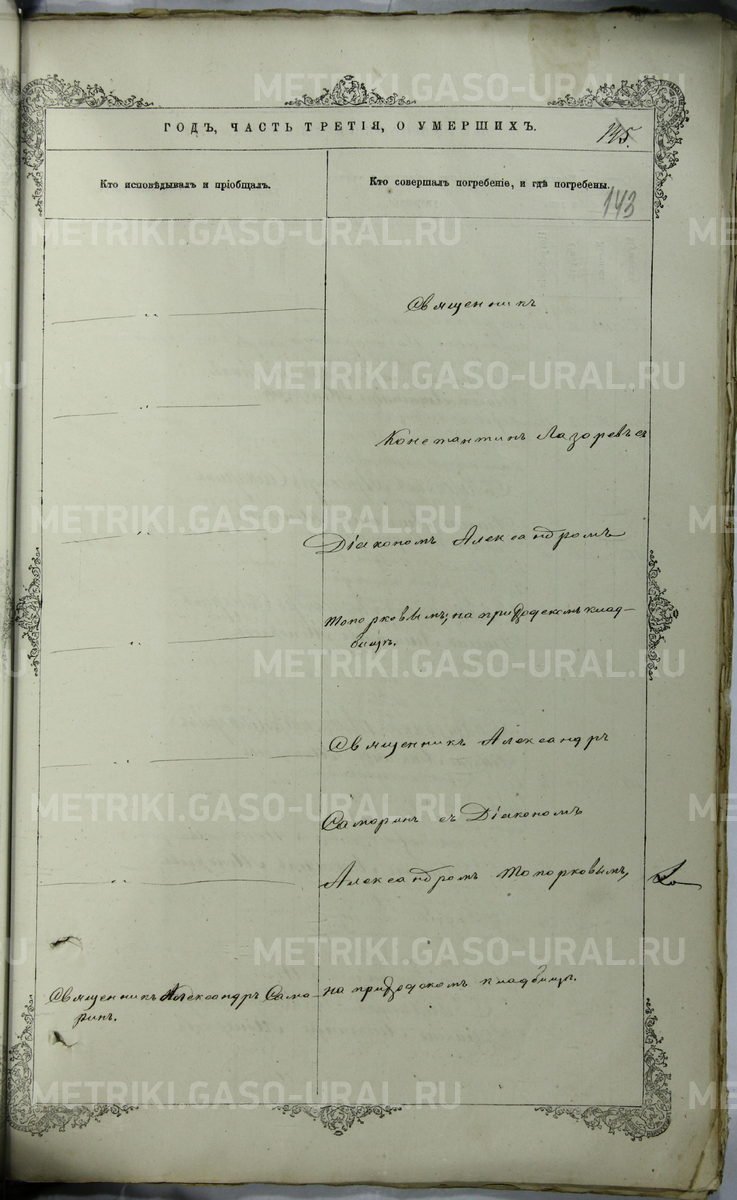 METRIKI.GASO-URAL.RU
ГОДЪ, ЧАСТЬ ТРЕТІЯ, О УМЕРШИХЪ.
145.
Кто исповѣдывалъ и пріобщалъ.
Кто совершалъ погребеніе, и гдѣ погребены.
143
Священникъ
Константинъ Лазоревъ съ
Діакономъ Александромъ
Топорковымъ, на приходскомъ клад-
бищѣ.
Священникъ Александръ
Саморинъ съ Діакономъ
Александромъ Топорковымъ,
на приходскомъ кладбищѣ.
Священникъ Александръ Само-
ринъ.